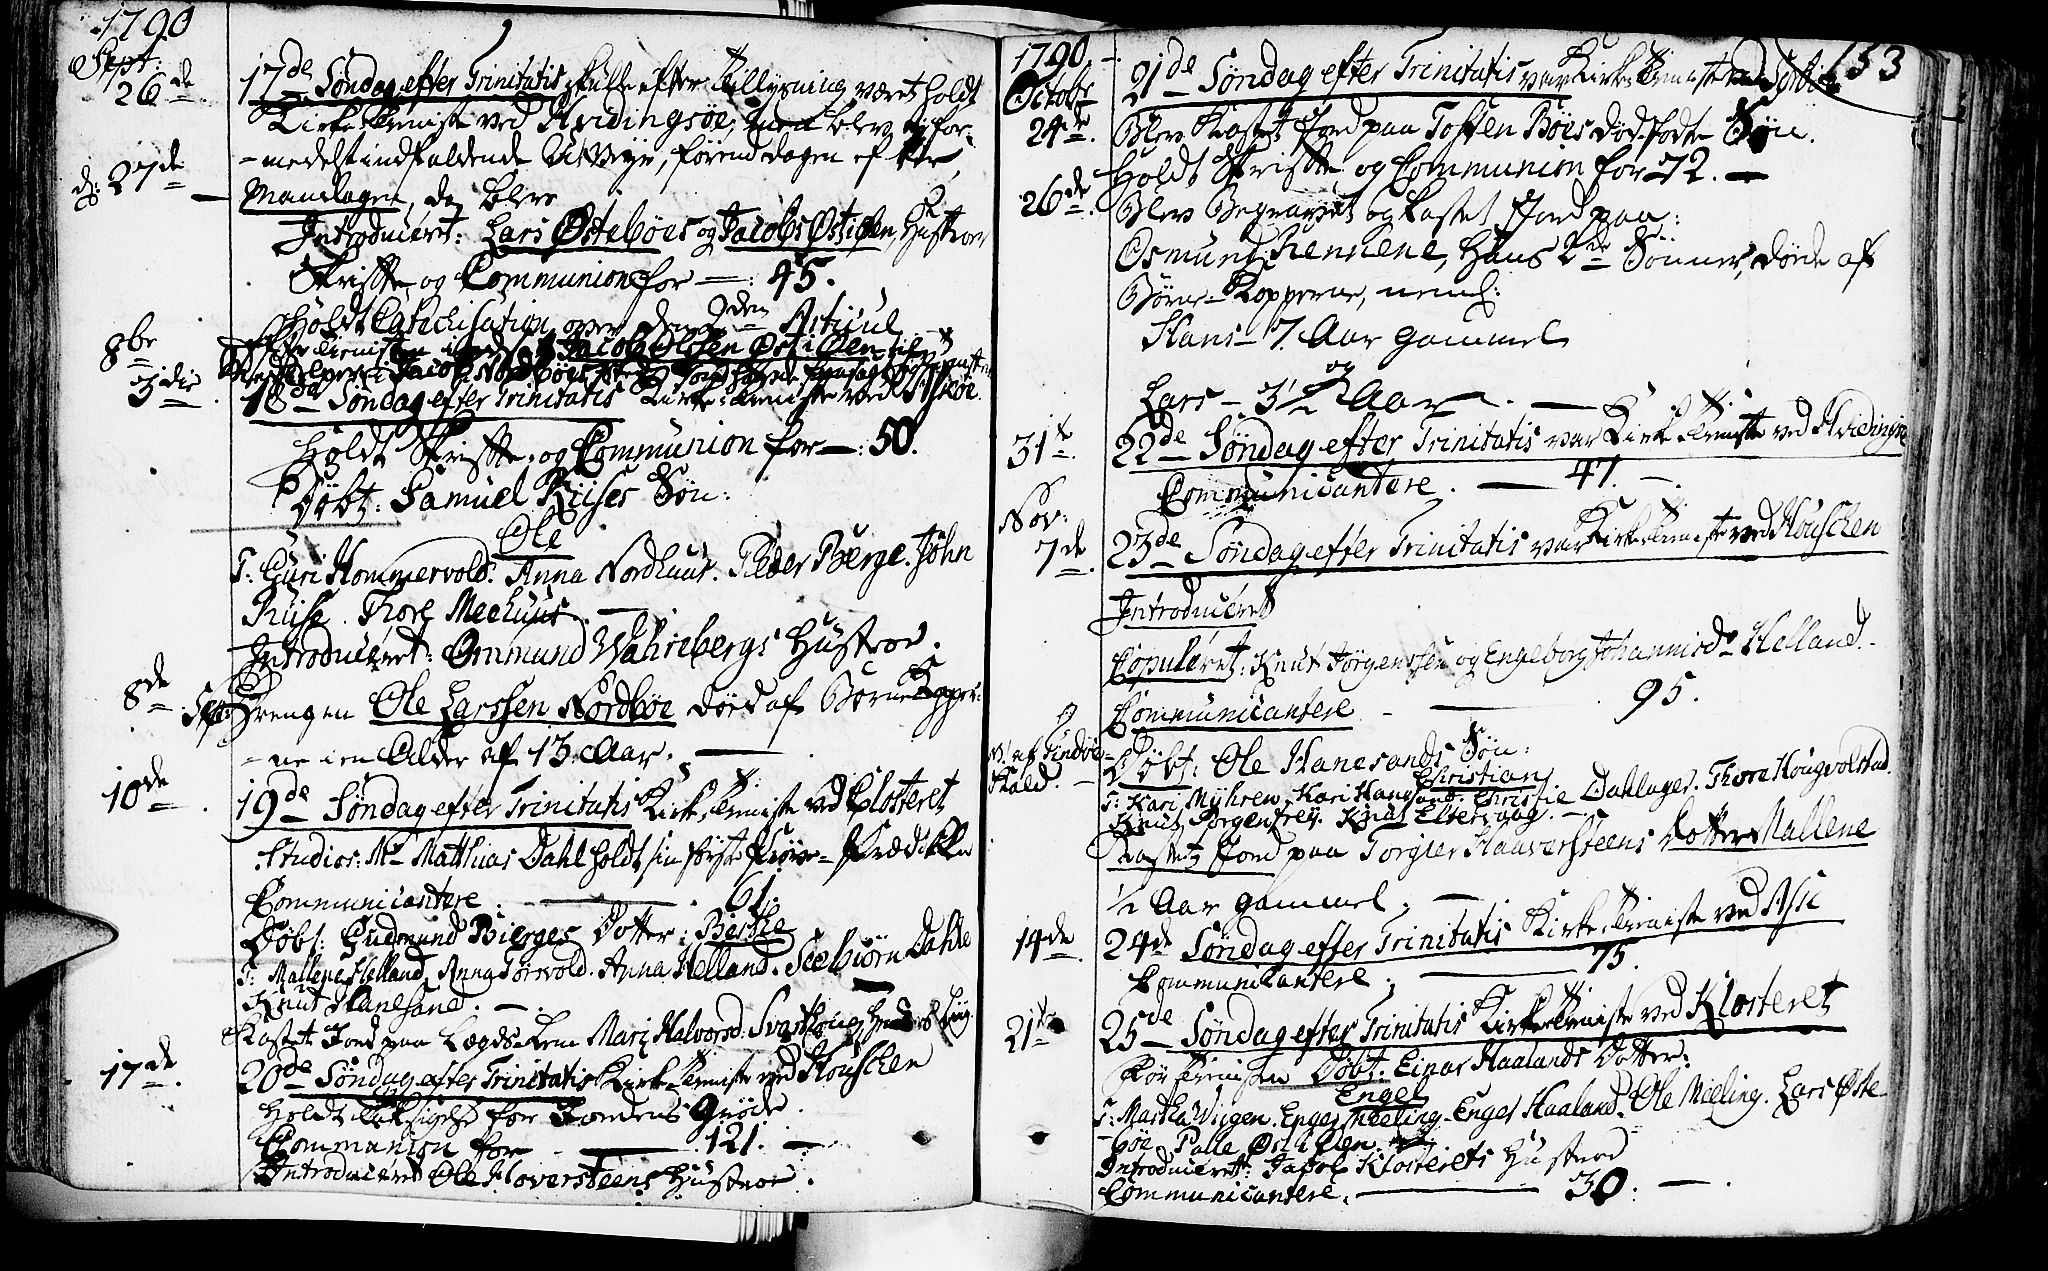 1790
Sept:
26de
17de Søndag efter Trinitatis skulle efter Tillysning været holdt
Kirke-Tieneste ved Hvidingsøe, men blev ey for-
-medelst indfaldende U-Veyr, førend dagen efter,
d: 27de
Mandagen, da blev
Introduceret: Lars Østebøes og Jacobs Østiøen, Hustroer
Skrifte og Communion for — 45.
Holdt Catechisation over den 9den Articul
Jacob Olsen Østiøen
8br
3die
18de Søndag efter Trinitatis Kirke-Tieneste ved Askøe
Holdt Skrifte og Communion for — 50.
Døbt: Samuel Riises Søn:
Ole
T: Guri Hommervold. Anna Nordhuus. Peder Berge. John
Riise. Thore Meehuus.
Introduceret: Ommund Wahlebergs Hustroe.
8de
Sept: Drengen Ole Larssen Nordbøe døde af Børne Kopper-
-ne i en Alder af 13 Aar.
10de
19de Søndag efter Trinitatis Kirke-Tieneste ved Closteret
Studios: Mr Matthias Dahl holdt sin første Prøve-Prædiken
Communicantere. — 61.
Døbt: Gudmund Bierges Dotter: Berthe
T: Mallene Helland, Anna Tørvold. Anna Helland. Seebiørn Dahle
Knut Hanesand.
Kastet Jord paa Lægds-Lem Mari Halvorsd:
17de
20de Søndag efter Trinitatis Kirke-Tieneste ved Houschen
Holdt Taksigelse for Jordens Grøde.
Communion for — 121. —
Introduceret Ole Hoversteens Hustroe.
1790
153
Octobr
24de
21de Søndag efter Trinitatis var Kirke-Tieneste ved
Blev Kastet Jord paa Tosten Bøes dødfødte Søn.
Holdt Skrifte og Communion for 72. —
26de
Blev Begravet og kastet Jord paa:
Osmund Rennene, Hans 2de Sønner, døde af
Børne-Kopperne, neml:
Hans – 7 Aar gammel
og
Lars – 3½ Aar. —
31t
22de Søndag efter Trinitatis var Kirke-Tieneste ved Hvidingsøe
Communicantere. — 47. —
Nov:
7de
23de Søndag efter Trinitatis var Kirke-Tieneste ved Houschen
Introduceret
Copuleret: Knut Jørgenssen og Engeborg Johannisdr Helland.
Communicantere — 95.
Døbt: Ole Hanesands Søn:
Christian
T: Kari Myhren, Kari Hanesand. Christie Dahlager. Thore Hougvolstad.
Knut Sorgenfrey. Knut Eltervaag. —
Kastet Jord paa Torgier Haaversteens Dotter Mallene
½ Aar gammel. —
14de
24de Søndag efter Trinitatis Kirke-Tieneste ved Aske
Communicantere. — 75.
21te
25de Søndag efter Trinitatis Kirke-Tieneste ved Klosteret
Før Tienesten Døbt: Einar Haalands Dotter:
Engel
T: Martha Viigen. Engel Meeling. Engel Haaland. Ole Meeling. Lars Øste-
-bøe Palle Østiøen
Introduceret: Jacob Klosterets Hustroe
Communicantere. — 30. —